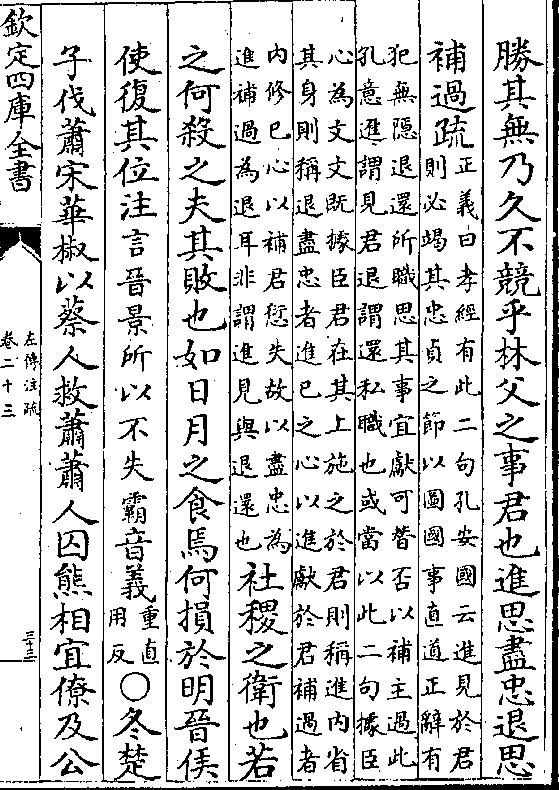 勝其無乃久不競乎林父之事君也進思盡忠退思
補過疏正義曰孝經有此二句孔安國云進見於君
則必竭其忠貞之節以圖國事直道正辭有
犯無隱退還所職思其事宜獻可替否以補主過此
孔意進謂見君退謂還私職也或當以此二句據臣
心為文文既據臣君在其上施之於君則稱進內省
其身則稱退盡忠者進已之心以進獻於君補過者
內修已心以補君愆失故以盡忠為
進補過為退耳非謂進見與退還也社稷之衛也若
之何殺之夫其敗也如日月之食焉何損於明晉侯
使復其位注言晉景所以不失霸音義重直用反○冬楚
子伐蕭宋華椒以蔡人救蕭蕭人囚熊相宜僚及公
欽定四庫全書
左傳注疏
卷二十三
三十三